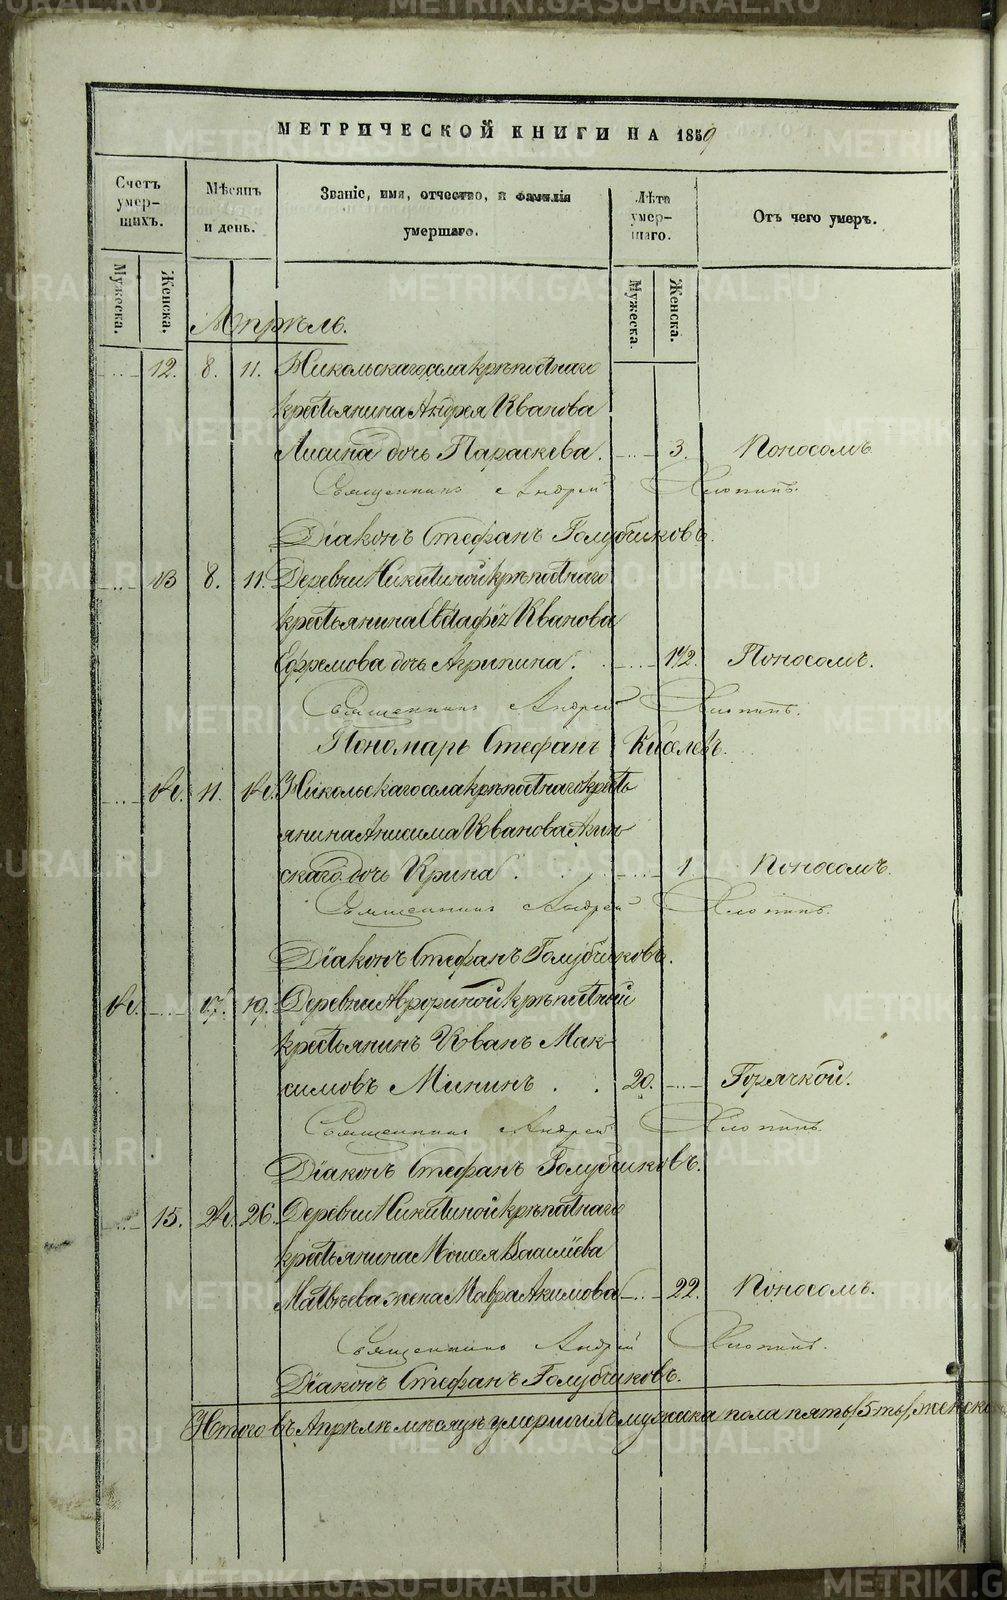 МЕТРИЧЕСКОЙ КНИГИ НА 1859
Счетъ умер-шихъ.
Мѣсяцъ и день.
Званіе, имя, отчество, и фамилія умершаго.
Лѣта умер-шаго.
Отъ чего умеръ.
Мужеска. Женска. Мужеска. Женска.
Апрѣль.
12. 8. 11. Никольскаго села крѣпостнаго
крестьянина Андрея Иванова
Лисина дочь Параскева. 3. Поносомъ.
Священникъ Андрей Хлопинъ.
Діаконъ Стефанъ Голубчиковъ.
13 8. 11. Деревни Никитиной крѣпостнаго
крестьянина Евстафія Иванова
Ефремова дочь Агрипина. 1 1/2. Поносомъ.
Священникъ Андрей Хлопинъ.
Пономарь Стефанъ Киселевъ.
14. 11. 14. Никольскаго села крѣпостнаго кресть
янина Анисима Иванова
скаго дочь Ирина 1 Поносомъ.
Священникъ Андрей Хлопинъ.
Діаконъ Стефанъ Голубчиковъ.
14. 17. 19. Деревни крѣпостный
крестьянинъ Иванъ Мак-
симовъ Мининъ . . 20. Горячкой.
Священникъ Андрей Хлопинъ.
Діаконъ Стефанъ Голубчиковъ.
15. 24. 26. Деревни Никитиной крѣпостнаго
крестьянина Моисея Василіева
Матвѣева жена Мавра Акимова 22. Поносомъ.
Священникъ Андрей Хлопинъ.
Діаконъ Стефанъ Голубчиковъ.
Итого въ Апрѣлѣ мѣсяцѣ умершихъ мужска пола пять /5-ть/, женска
METRIKI.GASO-URAL.RU